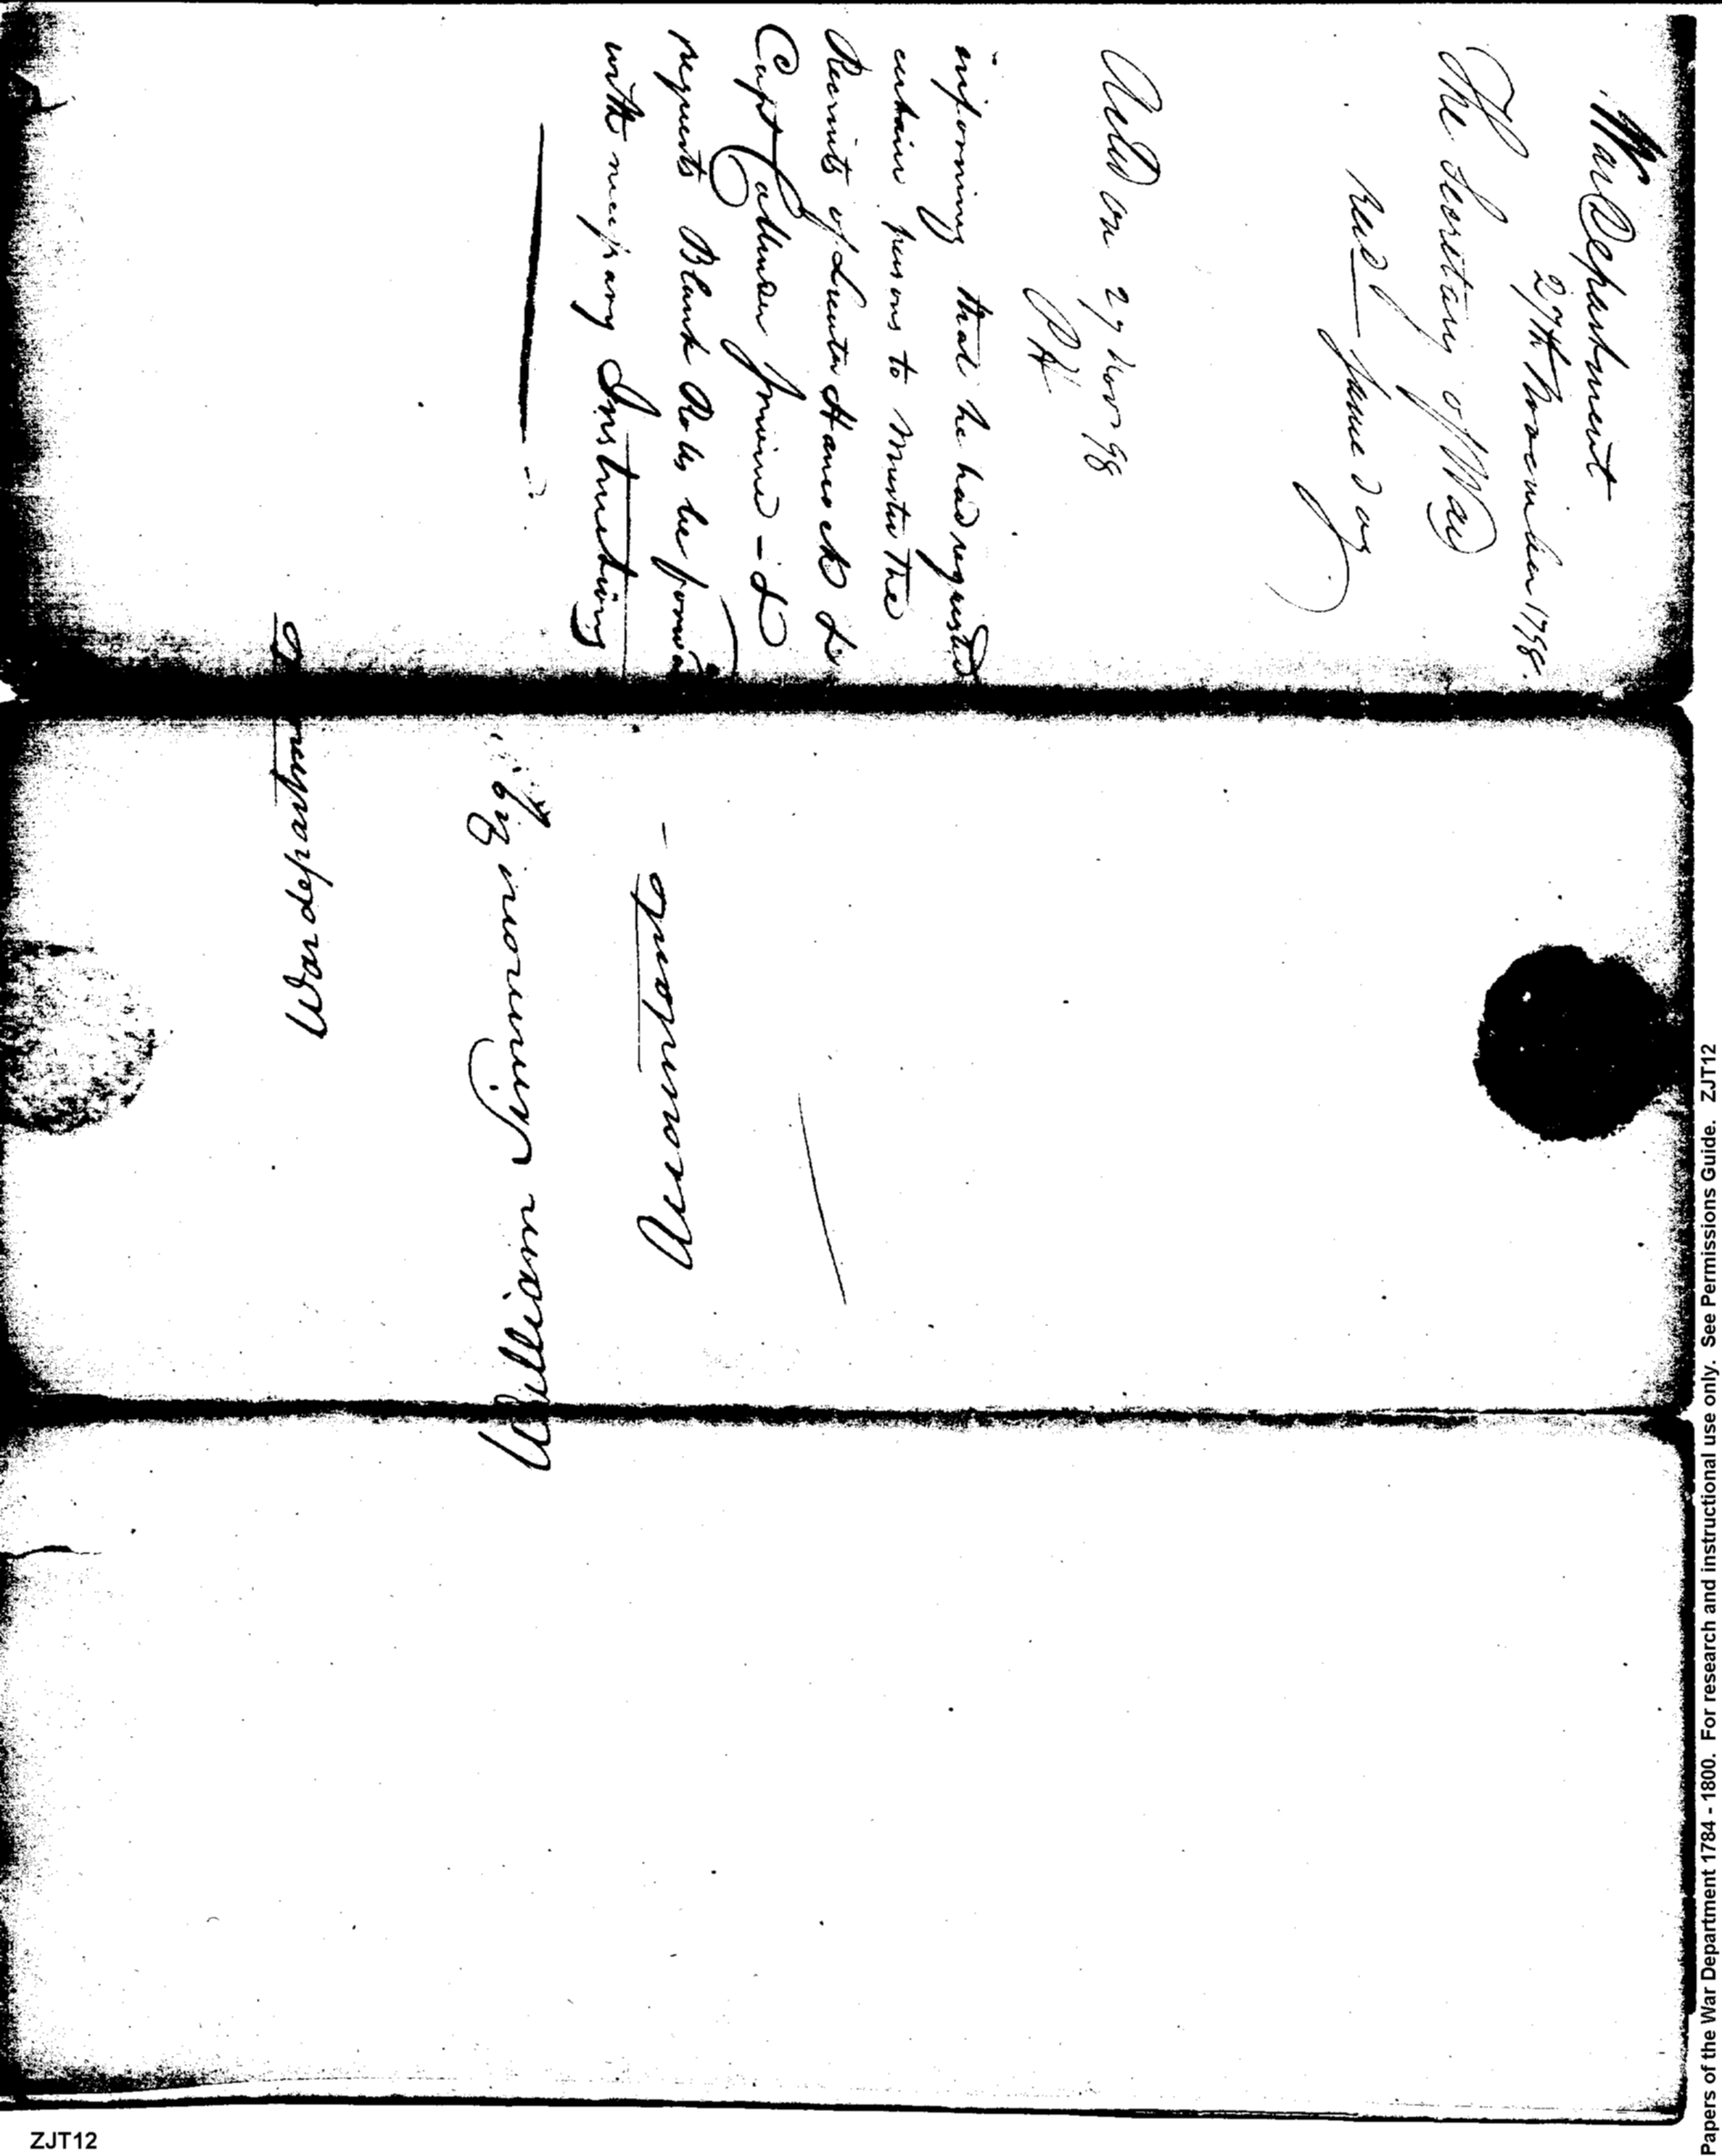 War Department
27th November 1798.
The Secretary of War
recd same day
Acted on 27 Novr 98
PH
informing that he had requested
certain persons to muster the
Recruits of Lieuts Hancock &
Capt Callender Irvine - &
requests Blank Rolls be forwd
with necessary Instructions
War department
William Simmons Esqr
Accountant
Papers of the War Department 1784 - 1800. For research and instructional use only. See Permissions Guide. ZJT12
ZJT12